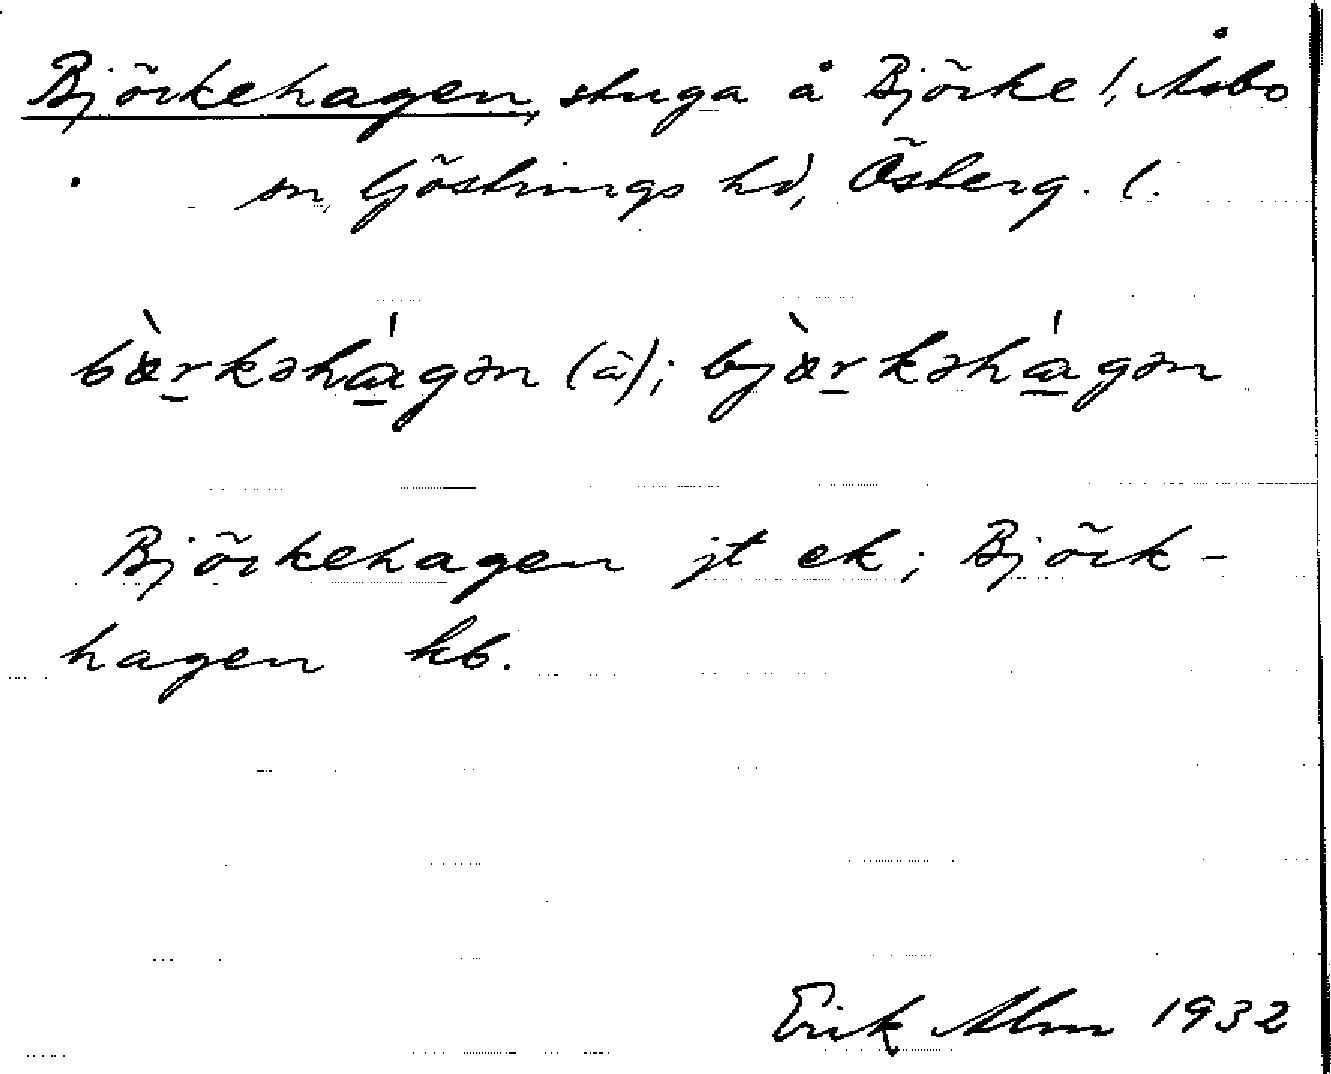 Björkehagen, stuga å Björke!, Åsbo
sn, Göstrings hd, Österg. l.
bæ̀rkəhágən (à); bjæ̀rkəhágən
Björkehagen jt ek; Björk-
hagen kb.
Erik Alm 1932